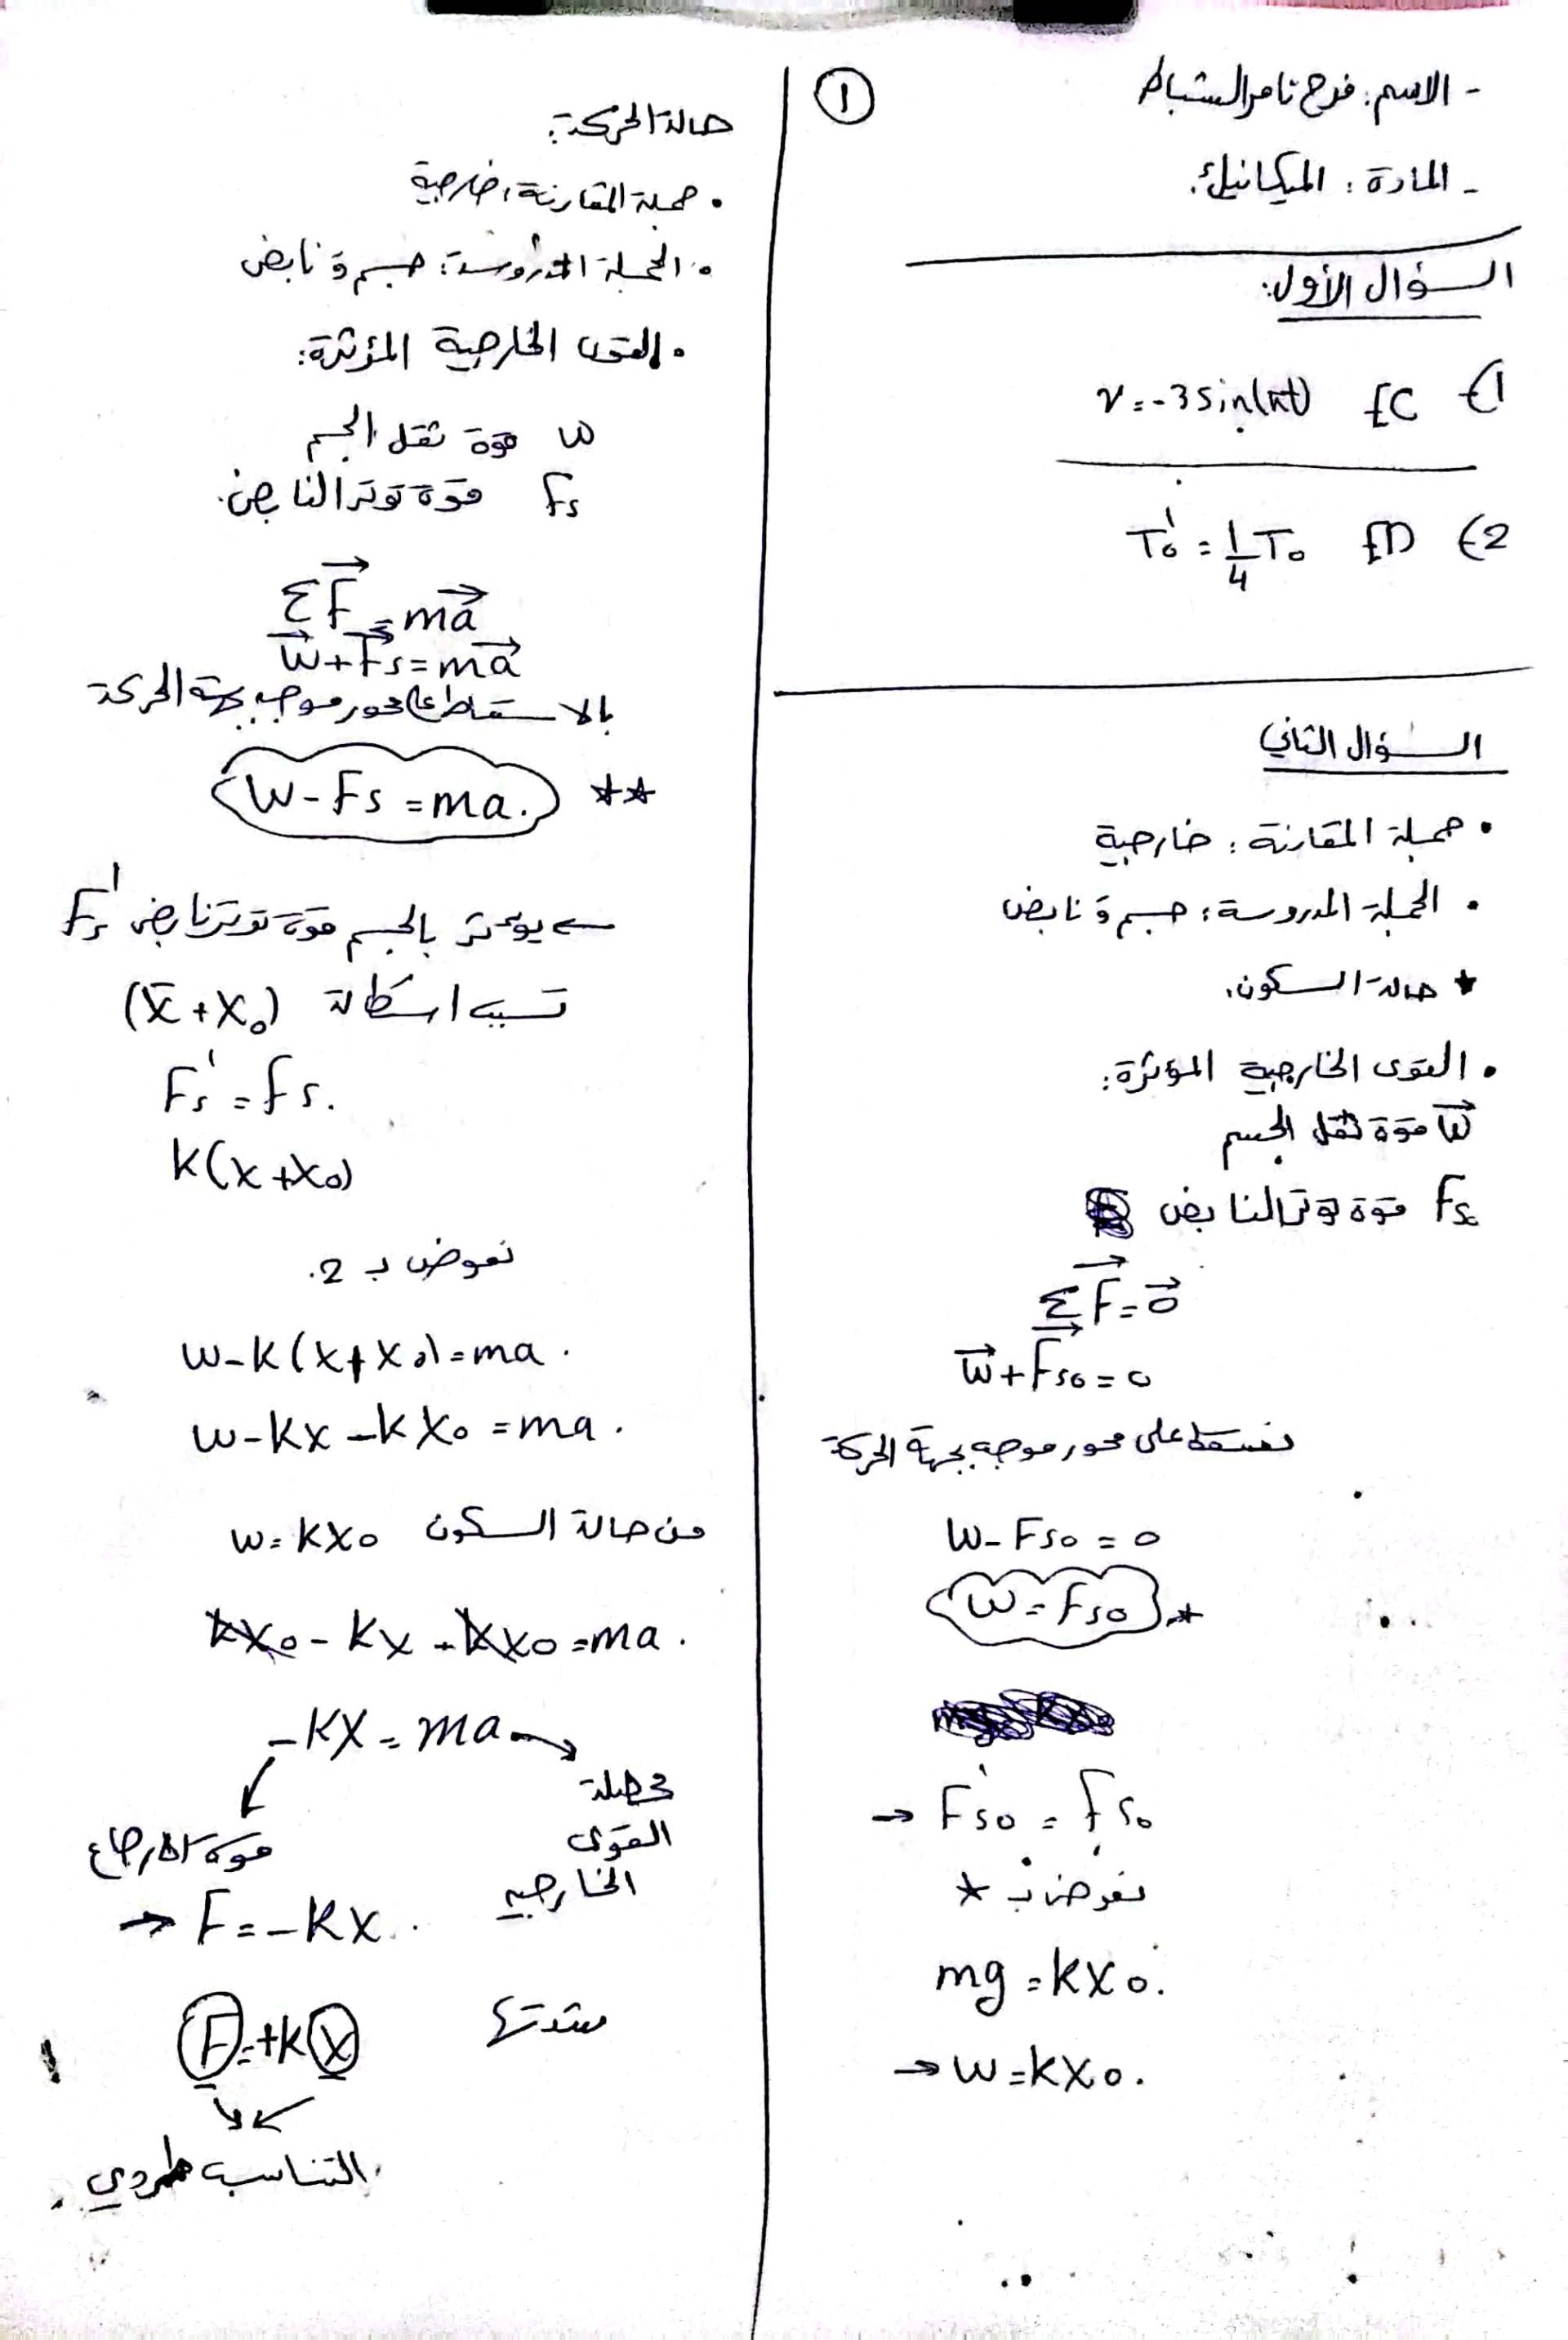 ①
- الاسم: فرح تامر الشباط
- المادة: الميكانيك.
السؤال الأول:
1) C] v = -3 sin(πt)
2) D] T₀' = 1/4 T₀
السؤال الثاني
• جملة المقارنة: خارجية
• الجملة المدروسة: جسم و نابض
★ حالة السكون.
• القوى الخارجية المؤثرة:
W⃗ قوة ثقل الجسم
Fs₀ قوة توتر النابض
ΣF⃗ = 0⃗
W⃗ + F⃗s₀ = 0
نسقط على محور موجه بجهة الحركة
W - Fs₀ = 0
W = Fs₀ *
→ F's₀ = Fs₀
نعوض بـ *
mg = kx₀.
→ W = kx₀.
حالة الحركة:
• جملة المقارنة: خارجية
• الجملة المدروسة: جسم و نابض
• القوى الخارجية المؤثرة:
W قوة ثقل الجسم
Fs قوة توتر النابض.
ΣF⃗ = ma⃗
W⃗ + F⃗s = ma⃗
بالاسقاط على محور موجه بجهة الحركة
W - Fs = ma. **
← يؤثر بالجسم قوة توتر نابض Fs'
تسبب استطالة (x̄ + x₀)
Fs' = Fs.
k(x + x₀)
نعوض بـ 2.
W - k(x + x₀) = ma.
W - kx - kx₀ = ma.
من حالة السكون W = kx₀
kx₀ - kx - kx₀ = ma.
-kx = ma →
محصلة
القوى
الخارجيه
قوة الارجاع
→ F = -kx.
شدتها F = +kx
التناسب طردي.